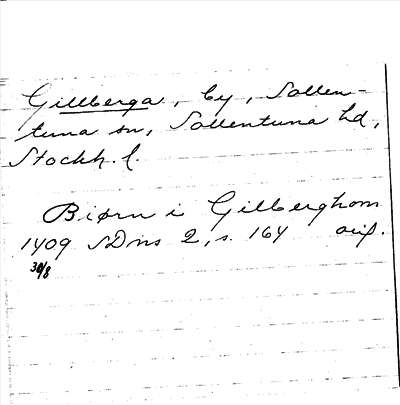 Gillberga, by, Sollen-
tuna sn, Sollentuna hd,
Stockh. l.
Biørn i Gilberghom
1409 SDns 2, s. 164 avs.
30/8